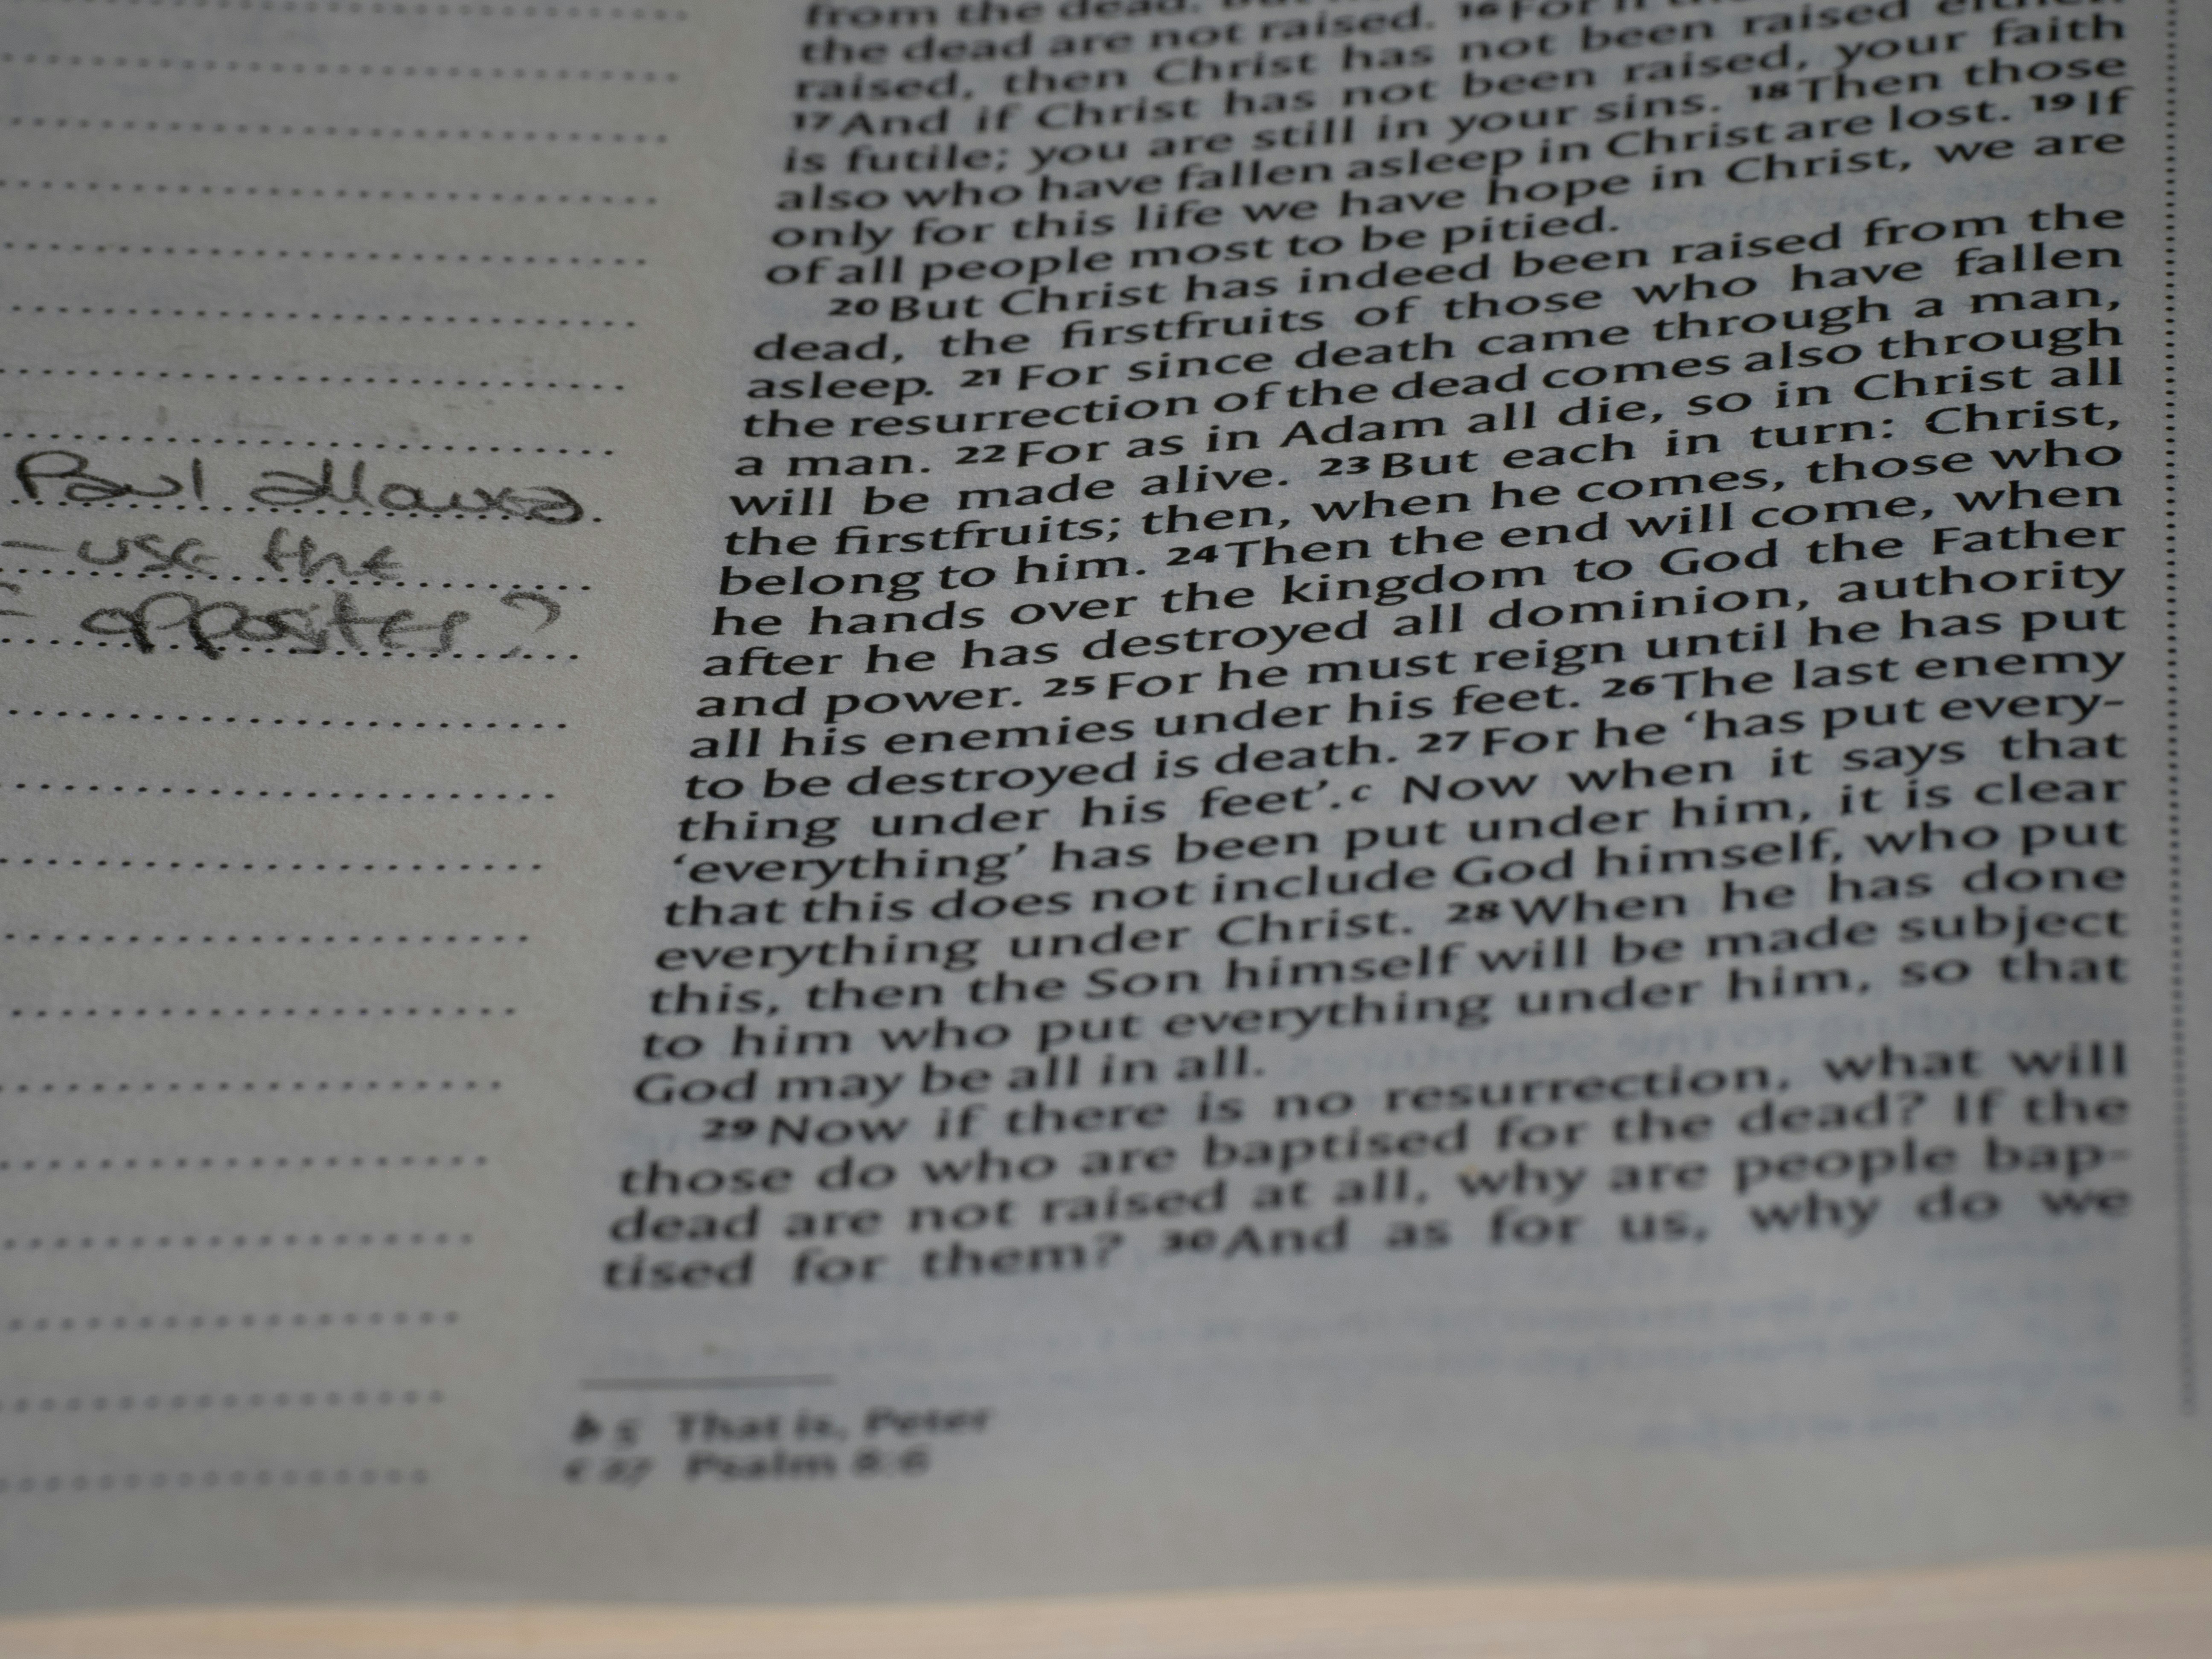 Paul allows
- use the
opposites?
from the dead.
the dead are not raised. 16 For if
raised, then Christ has not been raised either.
17 And if Christ has not been raised, your faith
is futile; you are still in your sins. 18 Then those
also who have fallen asleep in Christ are lost. 19 If
only for this life we have hope in Christ, we are
of all people most to be pitied.
20 But Christ has indeed been raised from the
dead, the firstfruits of those who have fallen
asleep. 21 For since death came through a man,
the resurrection of the dead comes also through
a man. 22 For as in Adam all die, so in Christ all
will be made alive. 23 But each in turn: Christ,
the firstfruits; then, when he comes, those who
belong to him. 24 Then the end will come, when
he hands over the kingdom to God the Father
after he has destroyed all dominion, authority
and power. 25 For he must reign until he has put
all his enemies under his feet. 26 The last enemy
to be destroyed is death. 27 For he ‘has put every-
thing under his feet’.c Now when it says that
‘everything’ has been put under him, it is clear
that this does not include God himself, who put
everything under Christ. 28 When he has done
this, then the Son himself will be made subject
to him who put everything under him, so that
God may be all in all.
29 Now if there is no resurrection, what will
those do who are baptised for the dead? If the
dead are not raised at all, why are people bap-
tised for them? 30 And as for us, why do we
b 5 That is, Peter
c 27 Psalm 8:6